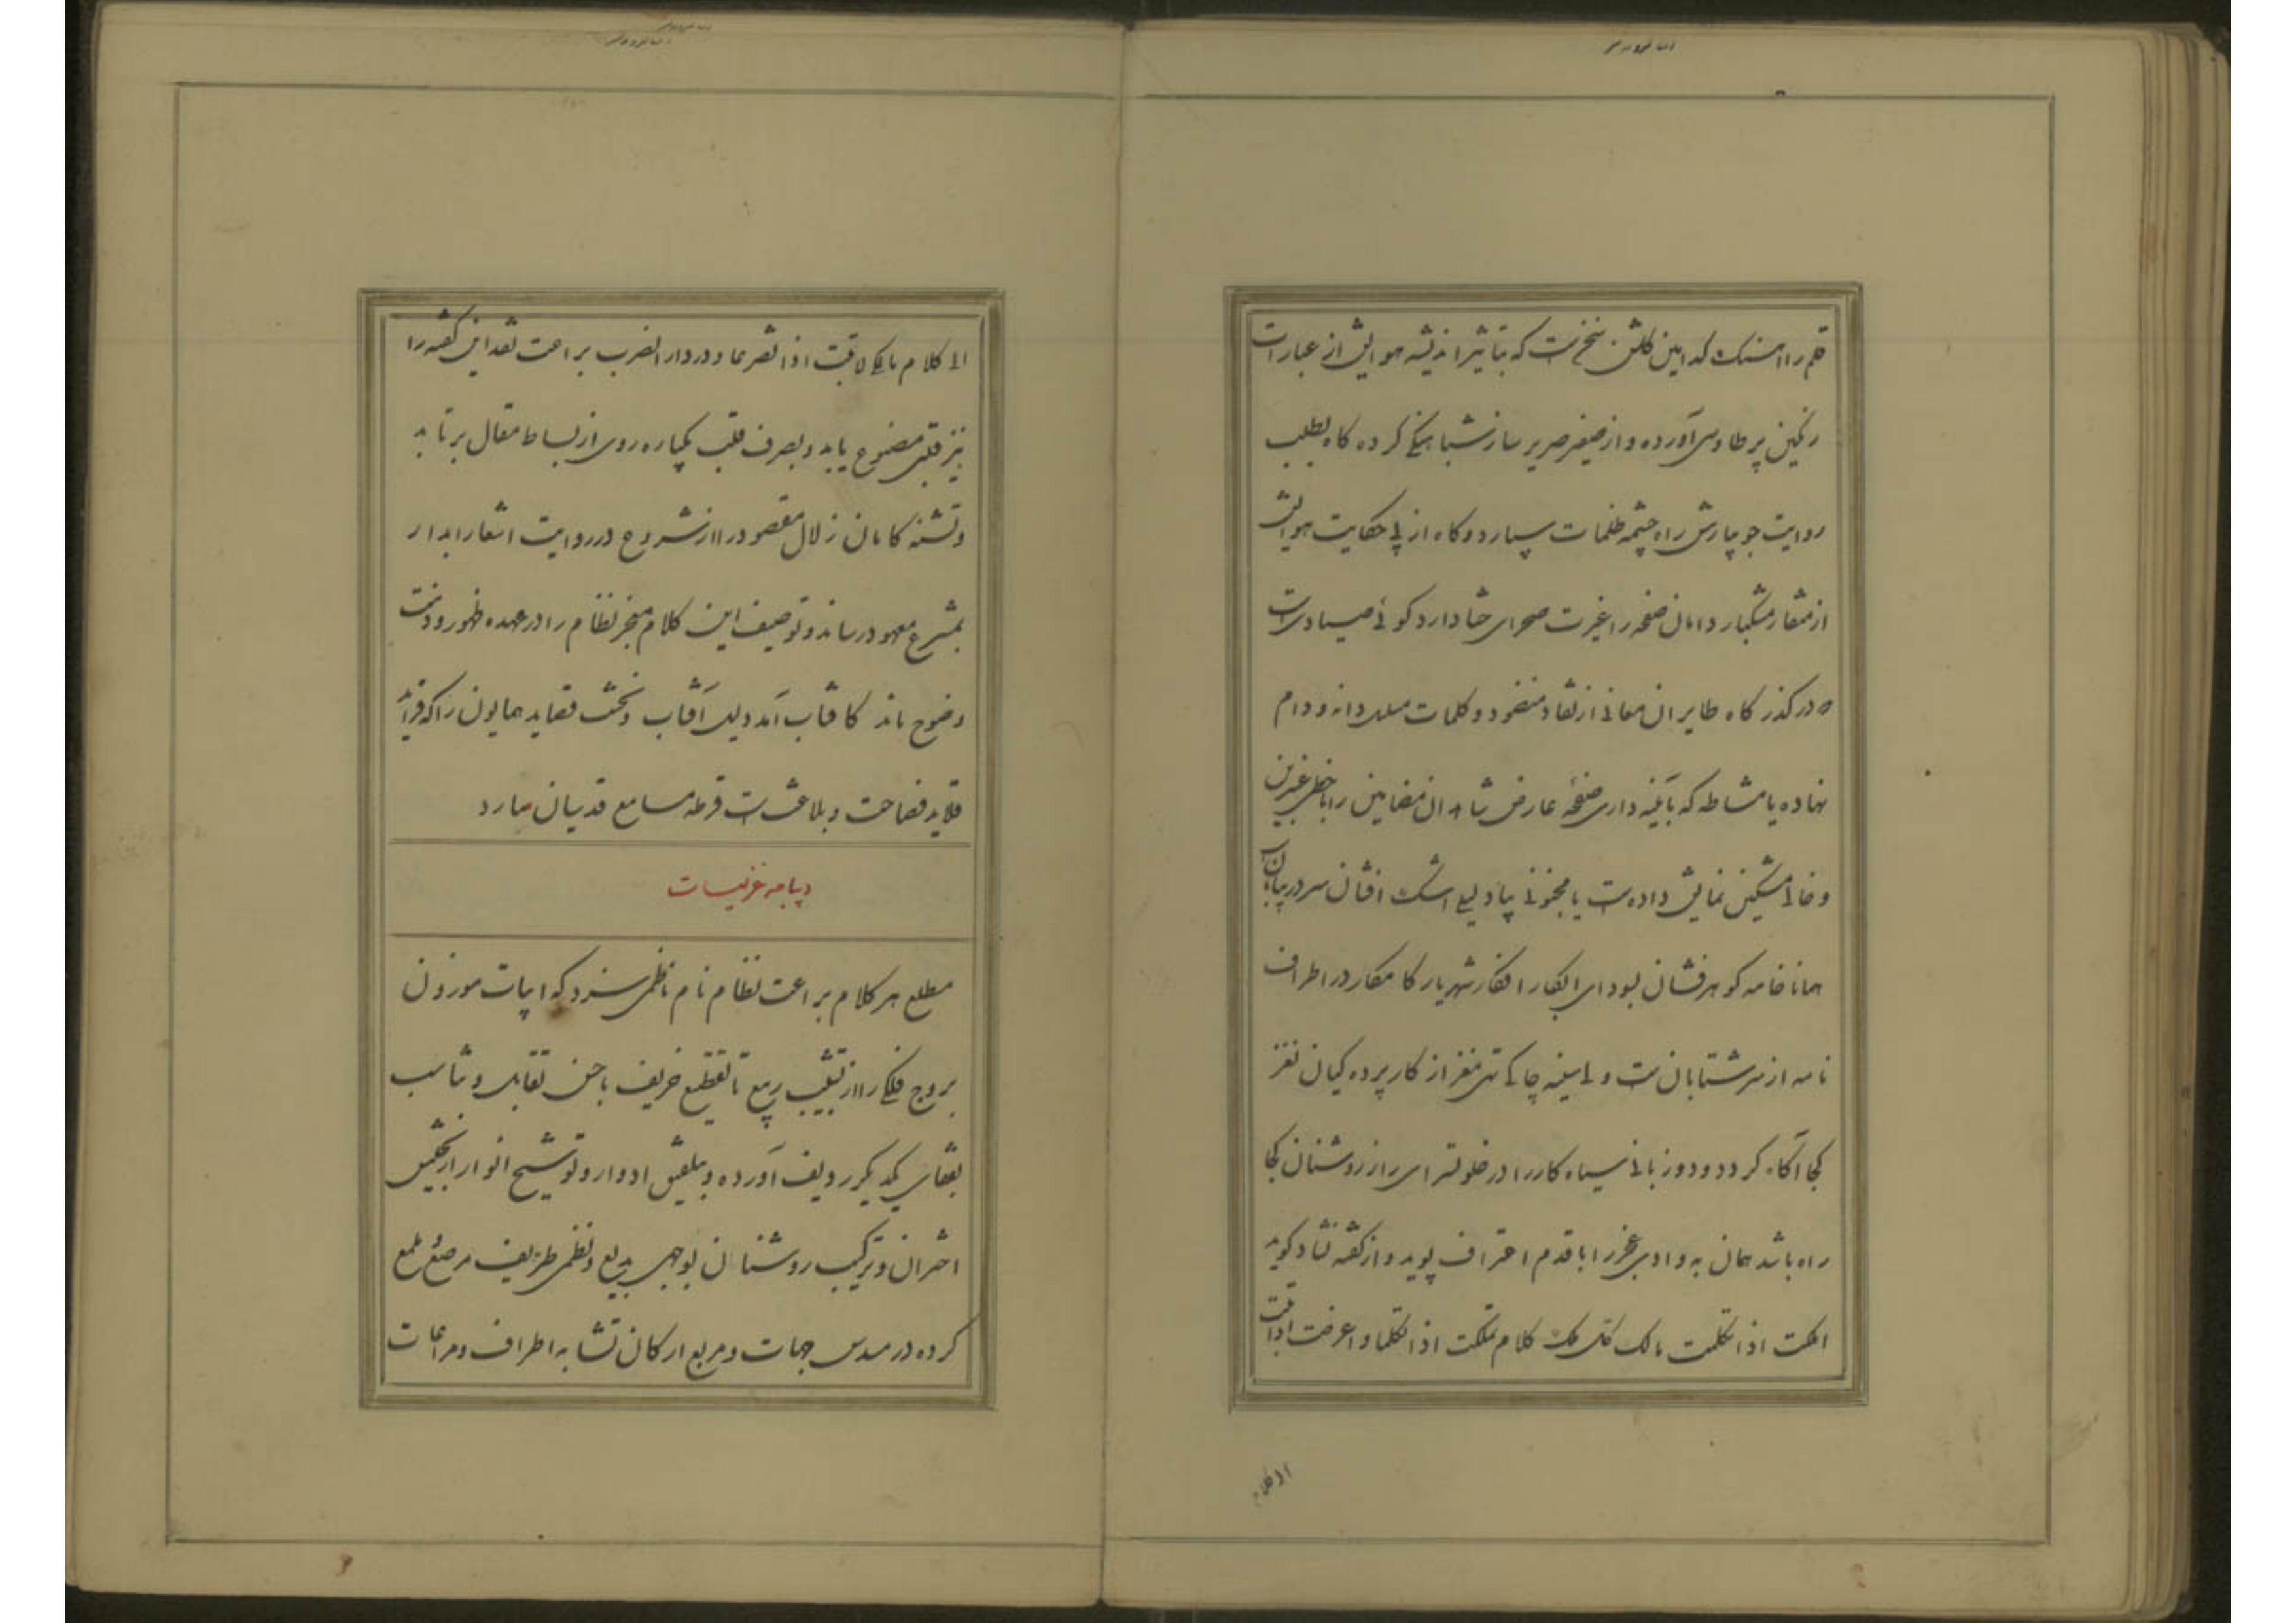 قلم را آهنگ که این گلشن سخن است که بتاثیر اندیشه هوایش از عبارات
رنگین پر طاوس آورده و از صفیر صریر ساز شباهنگی کرده گاه بطلب
روایت جویبارش راه چشمه ظلمات سپارد و گاه از پی حکایت هوایش
از منقار مشکبار دامان صفحه را غیرت صحرای ختا دارد گوئی صیادی است
در گذرگاه طایران معانی از نقاط منضود و کلمات دانه و دام
نهاده یا مشاطه که بآینه داری صفحه عارض شاهدان مضامین را با خط عنبرین
و خال مشکین نمایش داده است یا مجنونی بیاد لیلی اشک افشان سر در بیابان
همانا خامه گوهرفشان بسودای ابکار افکار شهریار کامکار در اطراف
نامه از سر شتابان است ولی سینه چاکی تهی مغز از کار پرده گیان نغز
کجا آگاه گردد و دو زبانی سیاه کار را در خلوتسرای راز روشنان کجا
راه باشد همان به وادی عجز را با قدم اعتراف پوید و از گفته نشاد گوید
امکت اذا تکلمت مالک کلام تملکت اذا تکلما و اعرضت اذا قلت
الی کلام
الی کلام مالکی لاقیت اذا تصرعا و در دار الضرب براعت نقد این گفته را
نیز قلبی مفضوح یابد و بصرف قلب یکباره روی از بساط مقال برتابد
و تشنه کامان زلال مقصود را از شروع در روایت اشعار ابدار
بمشرع معهود رساند و توصیف این کلام معجز نظام را در عهده ظهور و ذمت
وضوح ماند کافتاب آمد دلیل آفتاب و نخست قصاید همایون را که فراید
قلاید فصاحت و بلاغت است قرطه مسامع قدسیان سازد
دیباچه غزلیات
مطلع هر کلام براعت نظام نام ناظمی سزد که ابیات موزون
بروج فلکی را از تشبیب ربیع تا تقطیع خریف با حسن تقابل و تناسب
بقفای یکدیگر ردیف آورده و بتلفیق ادوار و توشیح انوار از تجنیس
اختران و ترکیب روشنان بوجهی بدیع و نظمی ظریف مرصع و ملمع
کرده در مسدس جهات و مربع ارکان تشابه اطراف و مراعات